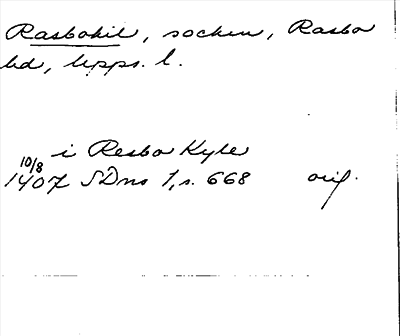 Rasbokil, socken, Rasbo
hd, Upps. l.
i Resbo Kyle
10/8
1407 SDns 1, s. 668 orig.